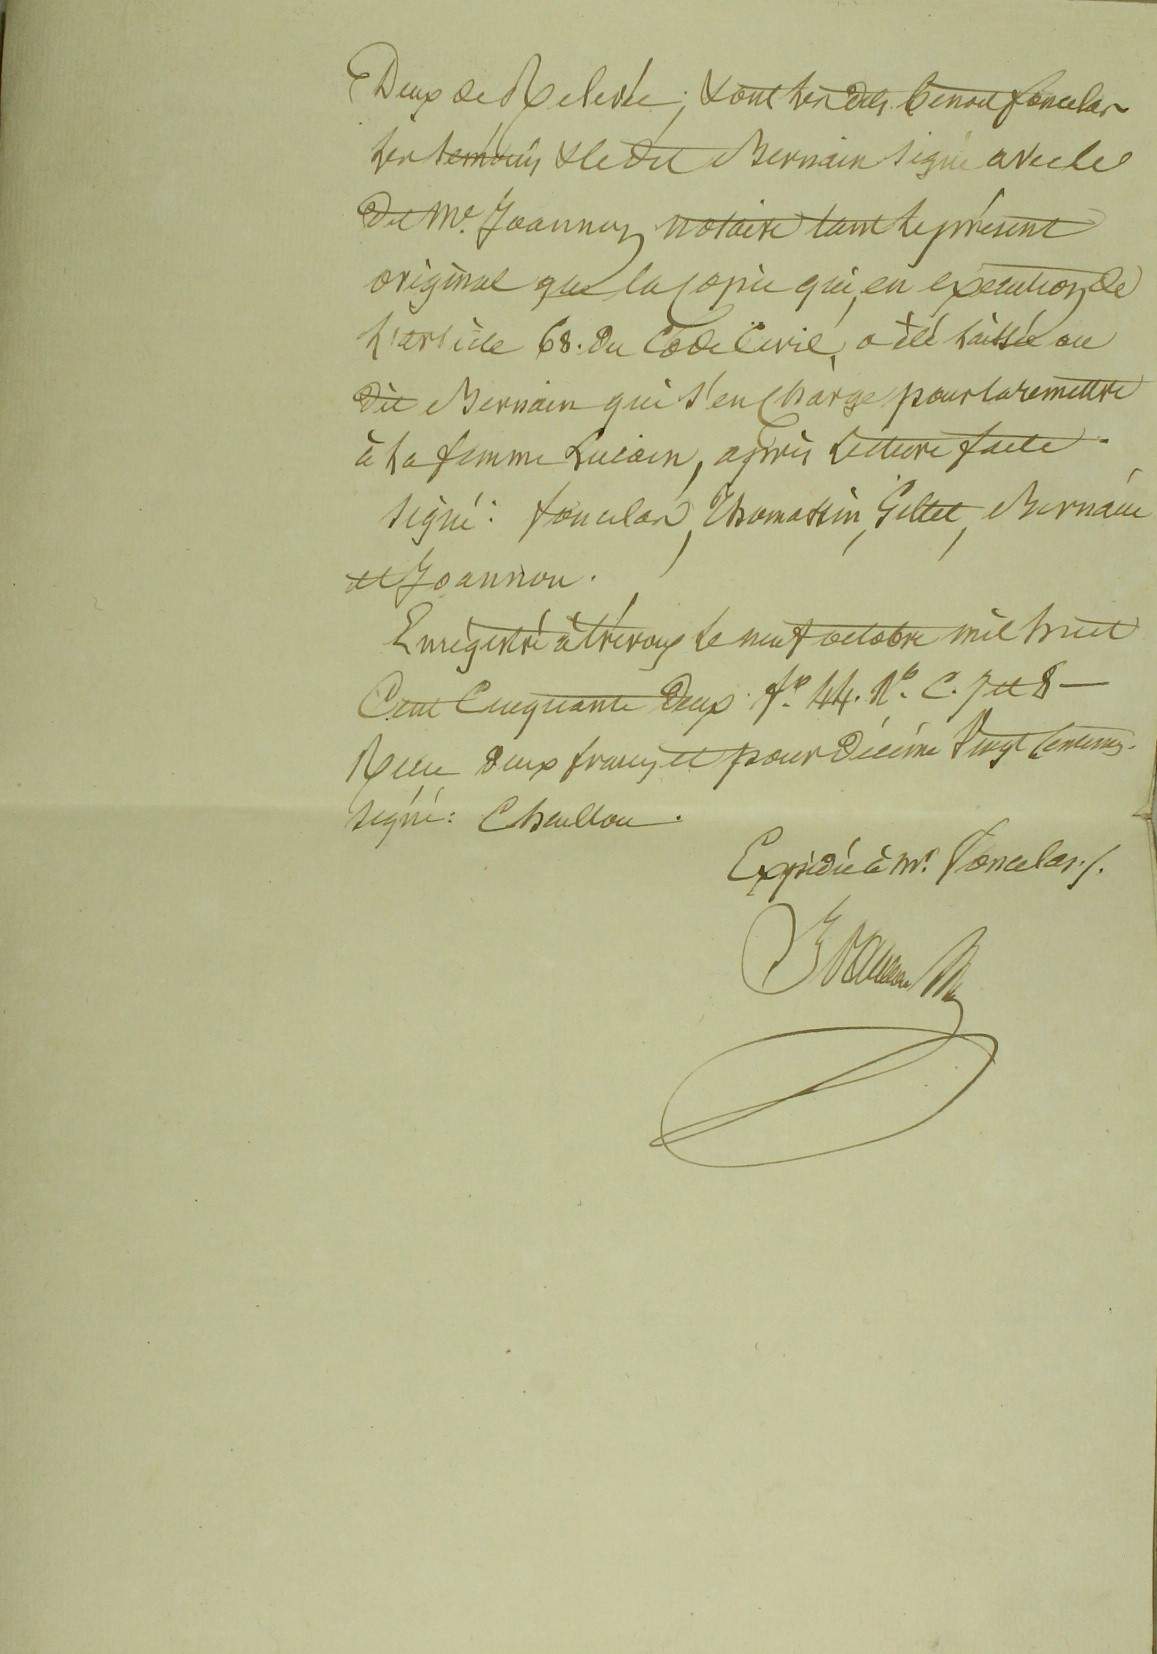 Deux de Relevée; & ont les dits Benoit Joncelar
les temoins & le dit Bernain signé avec le
dit Me. Joannon notaire tant le présent
original que la copie qui, en execution de
l'article 68. du Code Civil, a été laissée au
dit Bernain qui s'en charge pour la remettre
à la femme Lucien, après lecture faite.
signé: Joncelar, Thomassin, Gillet, Bernain
et Joannon.
Enregistré à trévoux le neuf octobre mil huit
Cent Cinquante Deux. fo. 44. Ro. C. 7 et 8 —
Reçu deux francs et pour décime Vingt Centimes.
signé: Chaullon.
Expédiée à Mr. Joncelar./.
Joannon